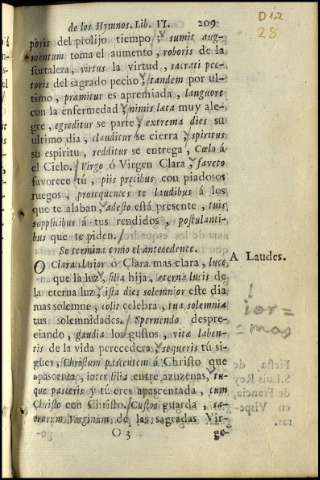 de los Hymnos. Lib. VI. 209
D12
28
poris del prolijo tiempo, sumit aug-
mentum toma el aumento, roboris de la
fortaleza, virtus la virtud, sacrati pec-
toris del sagrado pecho, tandem por ul-
timo, pramitur es apremiada, languore
con la enfermedad, nimis læta muy ale-
gre, egreditur se parte, extrema dies su
ultimo dia, clauditur se cierra, spiritus
su espiritu, redditur se entrega, Cœlo à
el Cielo. Virgo ò Virgen Clara, faveto
favorece tú, piis precibus con piadosos
ruegos, prosequentes te laudibus à los
que te alaban, adesto està presente, tuis
supplicibus à tus rendidos, postulanti-
bus que te piden.
Se termina como el antecedente.
A Laudes.
O Clara lucior ò Clara mas clara, luce
que la luz, filia hija, æternæ lucis de
la eterna luz, ista dies solemnior este dia
mas solemne, colit celebra, tua solemnia
tus solemnidades. Spernendo despre-
ciando, gaudia los gustos, vitæ laben-
tis de la vida perecedera, sequeris tú si-
gues, Christum pascentem à Christo que
apacenta, inter lilia entre azuzenas, tu-
que pasceris y tú eres apacentada, cum
Christo con Christo. Custos guarda, sa-
crarum Virginum de las sagradas Vir-
O 3 ge-
ior=
mas
Fiesta de
S. Luis Rey
de Francia,
en Vispe-
ras.